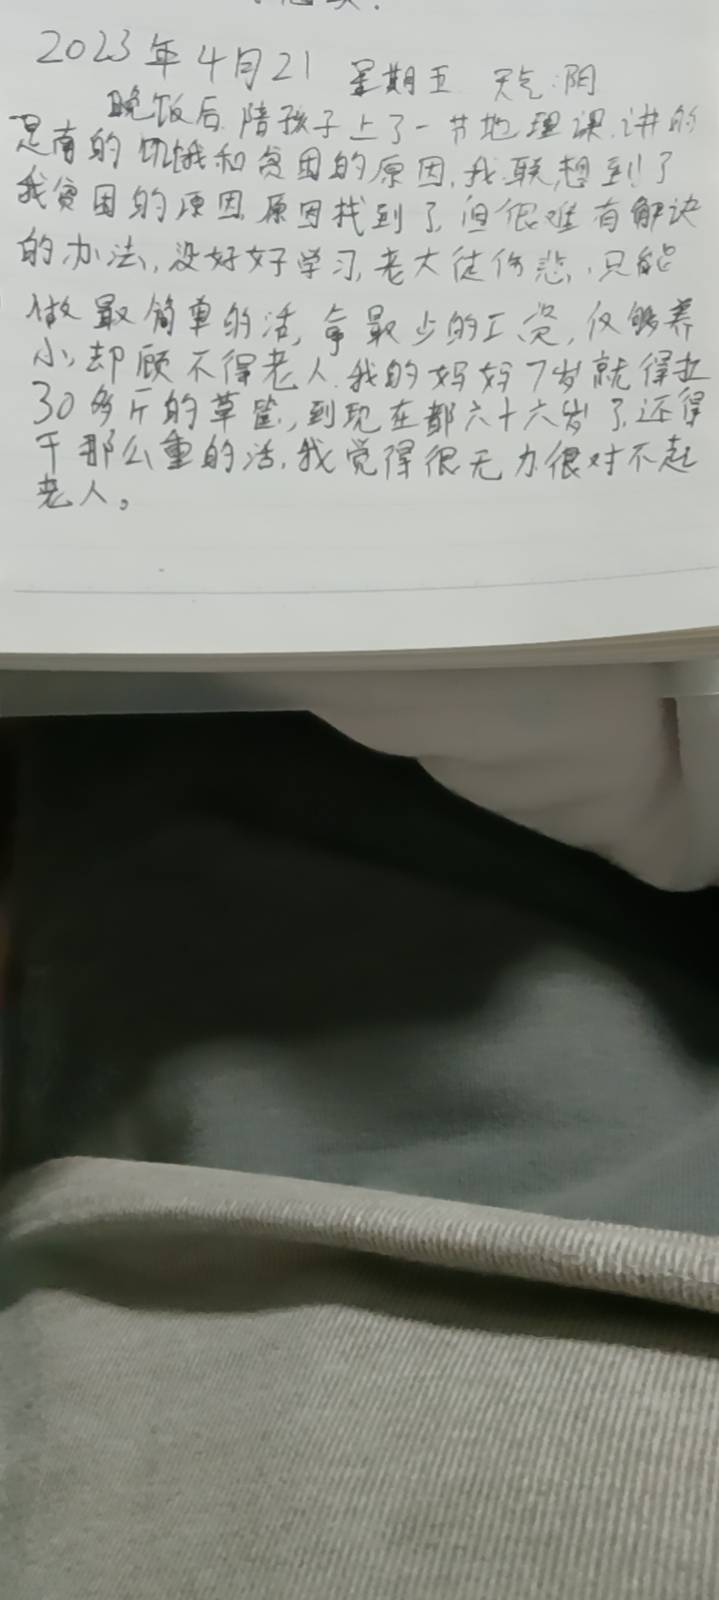 2023年4月21 星期五 天气:阴
晚饭后,陪孩子上了一节地理课,讲的
是南的饥饿和贫困的原因,我联想到了
我贫困的原因,原因找到了,但很难有解决
的办法,没好好学习,老大徒伤悲,只能
做最简单的活,拿最少的工资,仅够养
小,却顾不得老人,我的妈妈7岁就得拉
30多斤的草筐,到现在都六十六岁了,还得
干那么重的活,我觉得很无力很对不起
老人。